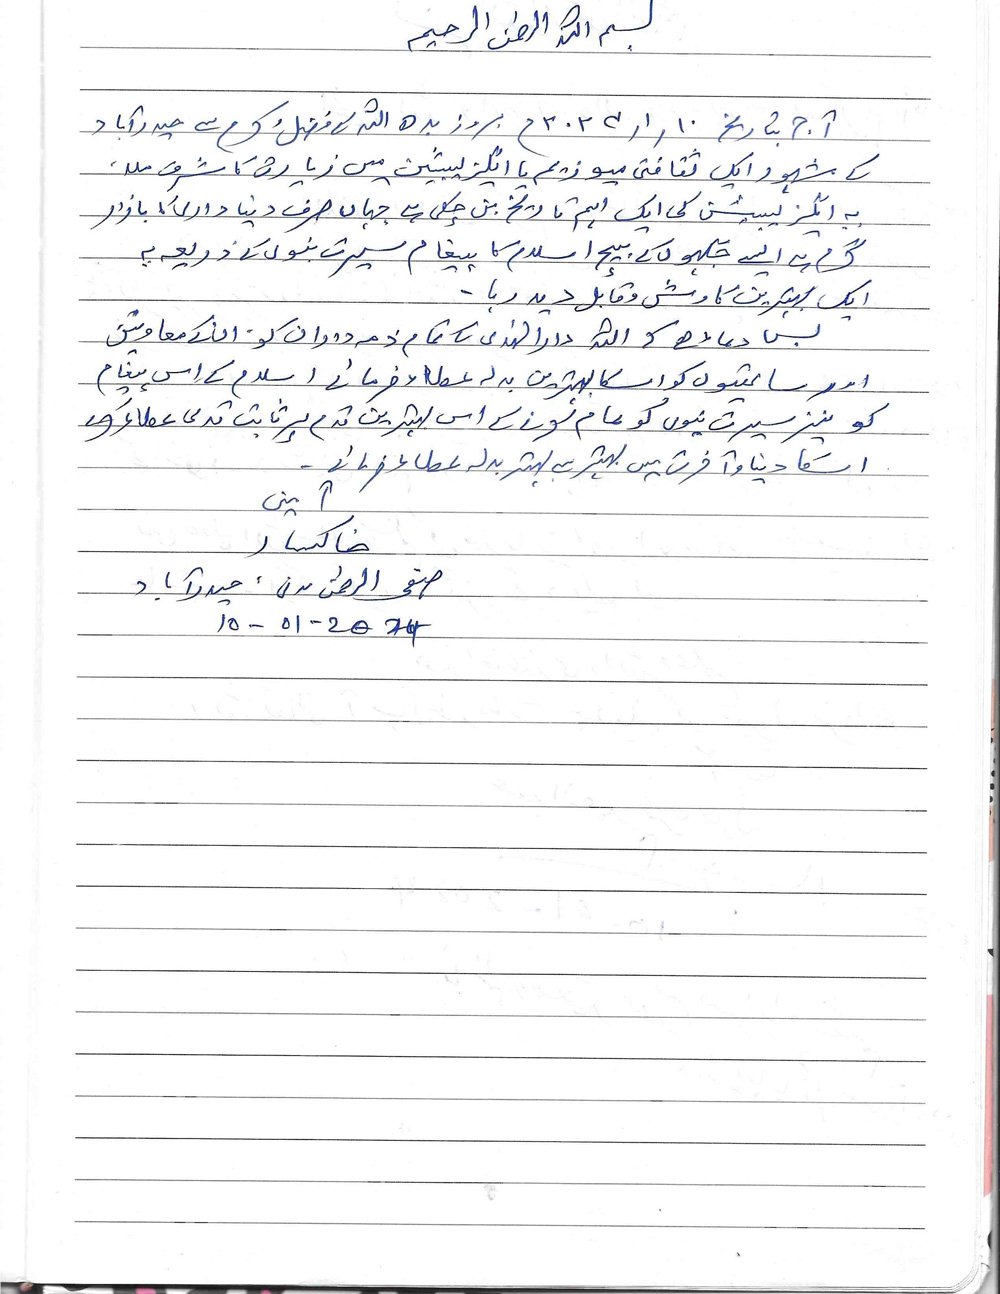 بسم اللہ الرحمٰن الرحیم
آج بتاریخ ۱۰/۱/۲۰۲۴م بروز بدھ اللہ کے فضل و کرم سے حیدرآباد
کے مشہور ایک ثقافتی میوزیم یا اگزیبیشن میں زیارت کا شرف ملا،
یہ اگزیبیشن کی ایک اہم تاریخ بن چکی ہے جہاں صرف دنیاداری کا بازار
گرم ہے ایسے جگہوں کے بیچ اسلام کا پیغام سیرت نبوی کے ذریعہ یہ
ایک بہترین کاوش و قابل دید رہا ۔
بس دعا ہے کہ اللہ دارالہدی کے تمام ذمہ داران کو، انکے معاونین
اور ساتھیوں کو اسکا بہترین بدلہ عطاء فرمائے اسلام کے اس پیغام
کو نیز سیرت نبوی کو عام کرنے کے اس بہترین قدم پر ثابت قدمی عطاء کرے
اسکا دنیا و آخرت میں بہتر سے بہتر بدلہ عطاء فرمائے ۔
آمین
خاکسار
صفی الرحمٰن مدنی، حیدرآباد
10-01-2024